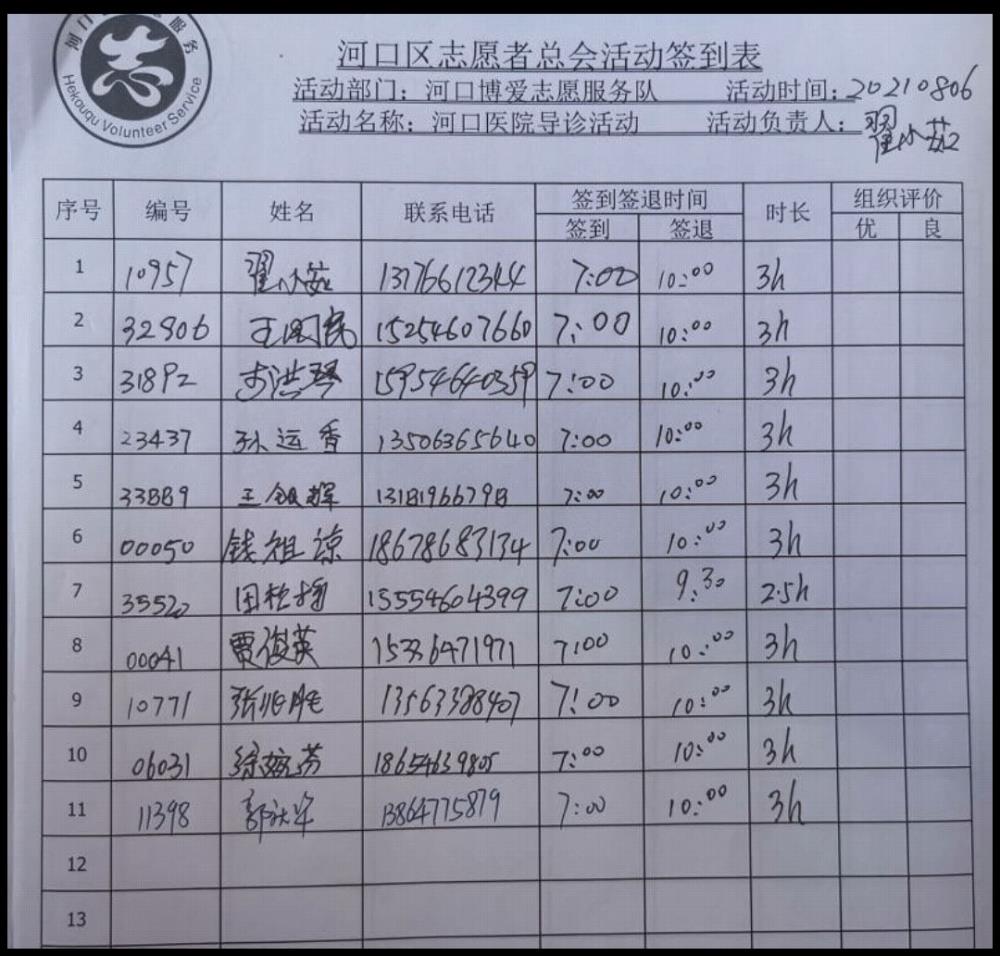 Hekouqu Volunteer Service
志
河口区志愿者总会活动签到表
活动部门：河口博爱志愿服务队 活动时间：20210806
活动名称：河口医院导诊活动 活动负责人：翟小茹
序号 编号 姓名 联系电话 签到签退时间 时长 组织评价
签到 签退 优 良
1 10957 翟小茹 13176612344 7:00 10:00 3h
2 32806 王国民 15254607660 7:00 10:00 3h
3 31892 李洪琴 15954640359 7:00 10:00 3h
4 23437 孙运香 13506365640 7:00 10:00 3h
5 33889 王银辉 13181966798 7:00 10:00 3h
6 00050 钱祖谅 18678683134 7:00 10:00 3h
7 35520 田 15554604399 7:00 9:30 2.5h
8 00041 贾俊英 7:00 10:00 3h
9 10771 张 13563388407 7:00 10:00 3h
10 06031 徐婉芬 18654639805 7:00 10:00 3h
11 11398 郭 13864775879 7:00 10:00 3h
12
13